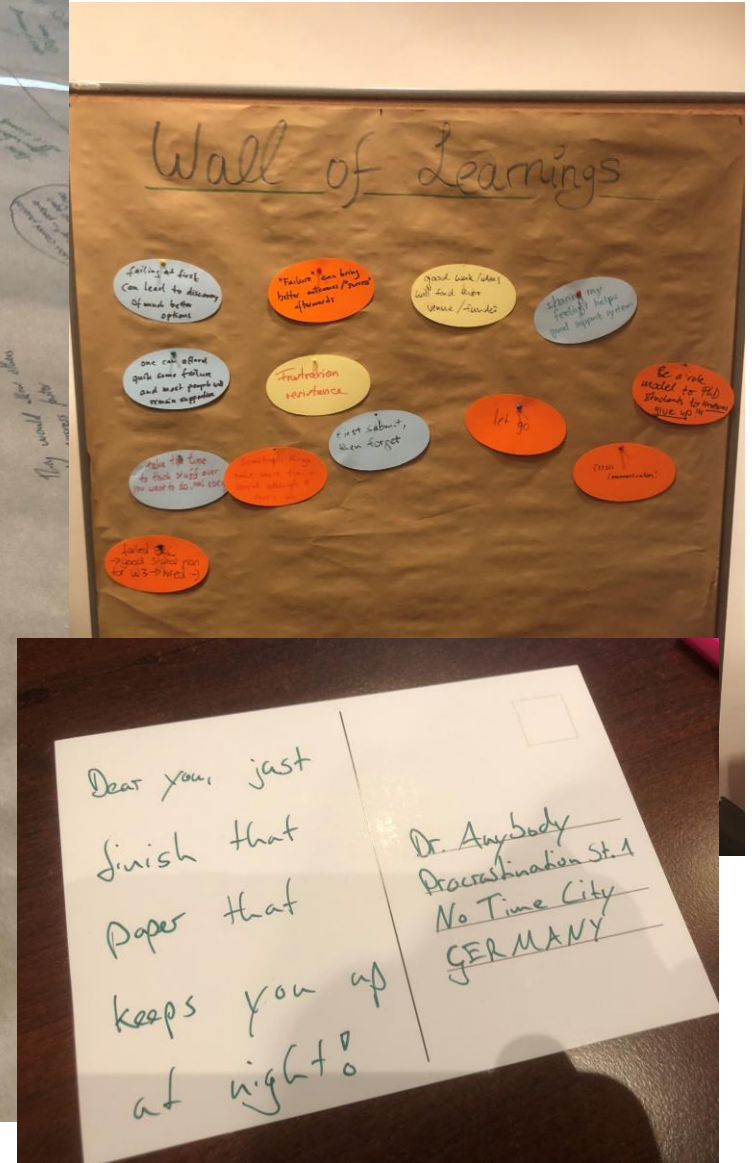 Wall of Learnings
failing at first
can lead to discovery
of much better
options
"Failure" can bring
better outcomes/"success"
afterwards
good work/ideas
will find their
venue/
sharing my
feelings helps
good support system
one can afford
quite some failure
and most people will
remain supportive
Frustration
resistance
First submit,
then forget
let go
Be a role
model to PhD
students to
give up!!!
take the time
to think stuff over
you want to do
Something
failed
→ good
for W3 → hired :-)
They would
Dear you, just
finish that
paper that
keeps you up
at night!
Dr. Anybody
Procrastination St. 1
No Time City
GERMANY